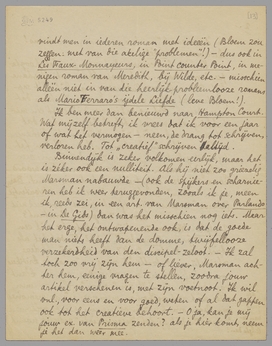 vindt men in iederen roman met ideeën (Bloem zou
zeggen: met van die akelige "problemen"!) – dus ook in
Les Faux-Monnayeurs, in Point Counter Point, in me-
nigen roman van Meredith, bij Wilde, etc. – misschien
alleen niet in van die heerlijk-problemlooze romans
als Mario Ferraro's ijdele Liefde (leve Bloem!).
Ik ben meer dan benieuwd naar Hampton Court.
Wat mijzelf betreft, ik weet dat ik voor een jaar
of wat het vermogen – neen, de drang tot schrijven,
verloren heb. Tot "creatief" schrijven altijd.
Binnendijk is zeker volkomen eerlijk, maar het
is zeker ook een nulliteit. Als hij niet zoo grienig
Marsman nabauwde – ook de spijkers en scharnie-
ren heb ik weer teruggevonden. Zooals ik je, meen
ik, reeds zei, in een art. van Marsman over Parlando
– in De Gids) dan was het misschien nog iets. Maar
het erge, het ontwapenende ook, is dat de goede
man niets heeft dan de domme, twijfellooze
verzekerdheid van den discipel-zeloot. – Ik zal
toch zoo vrij zijn hem – of liever, Marsman ach-
ter hem, eenige vragen te stellen, zoodra jouw
artikel verschenen is, met zijn voetnoot. Ik wil
ook, voor eens en voor goed, weten of al dat gappen
ook tot het creatieve behoort. – O ja, kan je mij
jouw ex. van Prisma zenden? als je hier komt neem
je het dan weer mee.